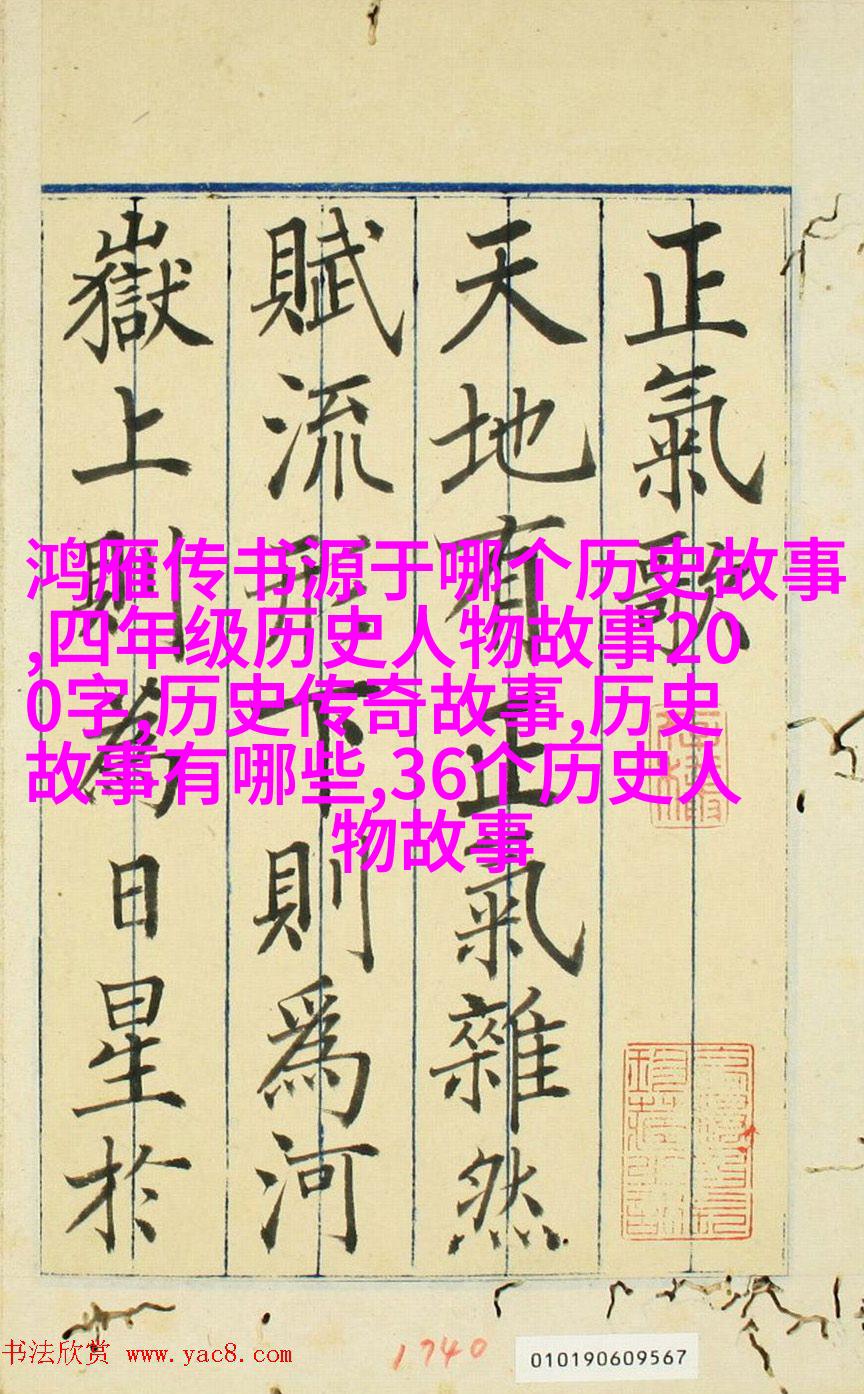 正氣歌
天地有正氣雜然
賦流形下則爲河
嶽上則為日星於
鸿雁传书源于哪个历史故事
,四年级历史人物故事20
0字,历史传奇故事,历史
故事有哪些,36个历史人
物故事
书法欣赏 www.yac8.com
1740
010190609567